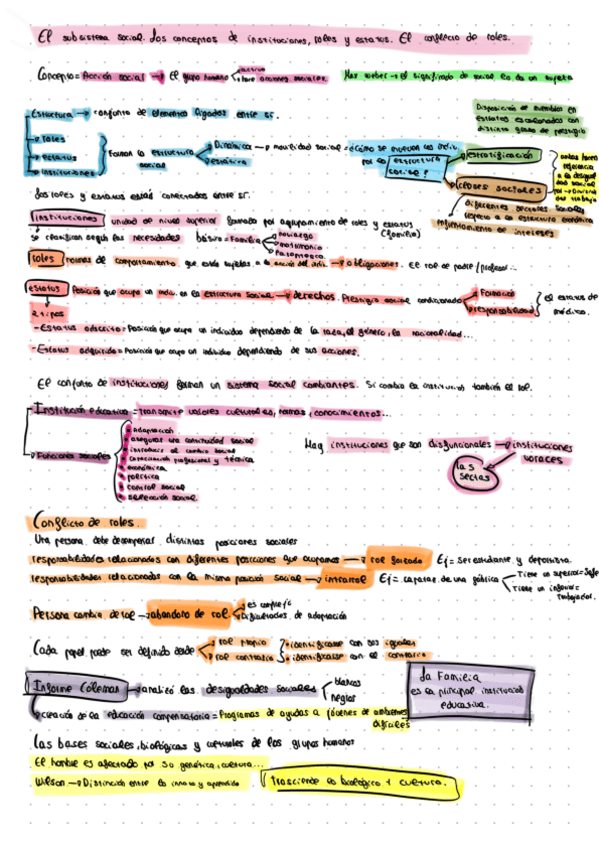 El subsistema social. Los conceptos de instituciones, roles y estatus. El conflicto de roles.
Concepto = Acción social → El grupo humano
Max Weber → el significado de social lo da un sujeto
Estructura → conjunto de elementos ligados entre sí.
→ roles
→ estatus
→ instituciones
Forman la estructura social
Dinámica → movilidad social = ¿Cómo se mueven los indiv. por la estructura social?
estática
Disposición de miembros en estratos escalonados con distinto grado de prestigio
estratificación
clases sociales
diferentes sectores sociales respecto a la estructura económica
enfrentamiento de intereses
ambas hacen referencia a la desigualdad social
Los roles y estatus están conectados entre sí.
Instituciones unidad de nivel superior formada por agrupamiento de roles y estatus (familia)
se clasifican según las necesidades básica = Familia
noviazgo
matrimonio
roles normas de comportamiento que están sujetas a la acción del indiv. → Obligaciones. El rol de padre/profesor...
estatus Posición que ocupa un indiv. en la estructura social → derechos. Prestigio social condicionado
Formación
responsabilidad
El estatus de médico.
2 tipos
- Estatus adscrito = Posición que ocupa un individuo dependiendo de la raza, el género, la nacionalidad...
- Estatus adquirido = Posición que ocupa un individuo dependiendo de sus acciones.
El conjunto de instituciones forman un sistema social cambiantes. Si cambia la institución también el rol.
Institución educativa = transmite valores culturales, normas, conocimientos...
→ Funciones sociales
• adaptación
• asegurar una continuidad social
• introducir al cambio social
• capacitación profesional y técnica
• económica
• política
• control social
• selección social
Hay instituciones que son disfuncionales → instituciones voraces
las sectas
Conflicto de roles.
Una persona debe desempeñar distintas posiciones sociales
responsabilidades relacionadas con diferentes posiciones que ocupamos → rol forzado Ej = ser estudiante y deportista.
responsabilidades relacionadas con la misma posición social → intrarrol Ej = capataz de una fábrica
Tiene un superior = Jefe
Tiene un inferior = trabajador.
Persona cambia de rol → abandono de rol
es complejo
Dificultades de adaptación
Cada papel puede ser definido desde
rol propio • identificarse con sus iguales
rol contrario • identificarse con el contrario
Informe Coleman → analizó las desigualdades sociales
blancos
negros
creación de la educación compensatoria = Programas de ayudas a jóvenes de ambientes difíciles
La Familia
es la principal institución educativa.
Las bases sociales, biológicas y culturales de los grupos humanos
El hombre es afectado por su genética, cultura...
Wilson → Distinción entre lo innato y aprendido
Trasciende lo biológico + cultura.